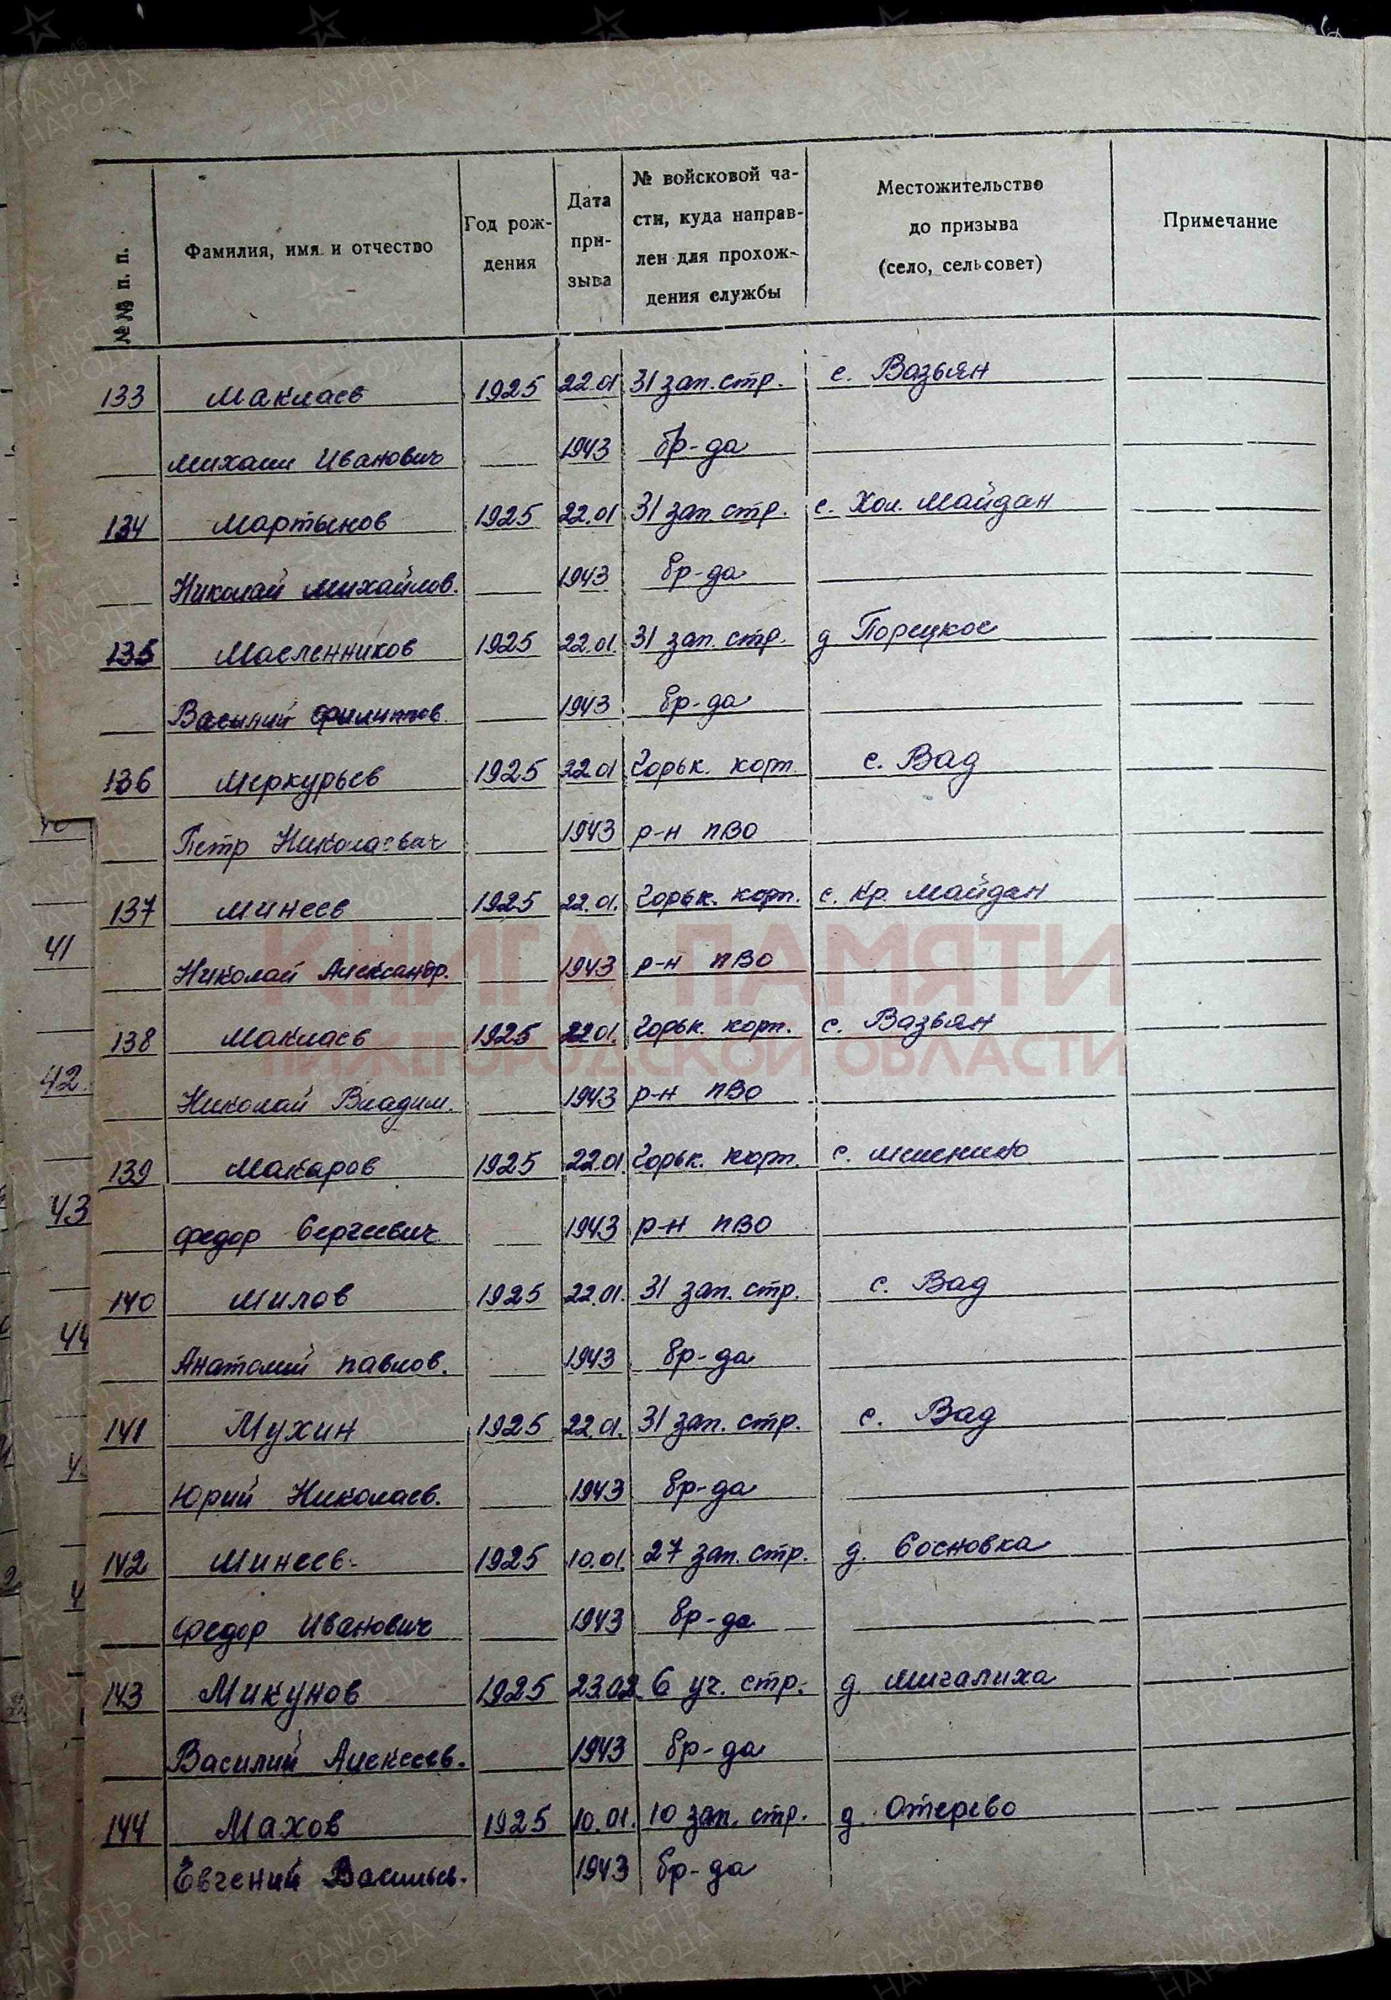 №№ п. п.
Фамилия, имя и отчество
Год рож-
дения
Дата
при-
зыва
№ войсковой ча-
сти, куда направ-
лен для прохож-
дения службы
Местожительство
до призыва
(село, сельсовет)
Примечание
133 Маклаев 1925 22.01 31 зап. стр. с. Вазьян
Михаил Иванович 1943 бр-да
134 Мартынов 1925 22.01 31 зап. стр. с. Хол. Майдан
Николай Михайлов. 1943 бр-да
135 Масленников 1925 22.01. 31 зап. стр. д Порецкое
Василий Филиппов. 1943 бр-да
136 Меркурьев 1925 22.01 Горьк. корп. с. Вад
Петр Николаевич 1943 р-н ПВО
137 Минеев 1925 22.01. Горьк. корп. с. Кр. Майдан
Николай Александр. 1943 р-н ПВО
138 Маклаев 1925 22.01. Горьк. корп. с. Вазьян
Николай Владим. 1943 р-н ПВО
139 Макаров 1925 22.01. Горьк. корп. с.
Федор Сергеевич 1943 р-н ПВО
140 Милов 1925 22.01. 31 зап. стр. с. Вад
Анатолий Павлов. 1943 бр-да
141 Мухин 1925 22.01. 31 зап. стр. с. Вад
Юрий Николаев. 1943 бр-да
142 Минеев 1925 10.01. 27 зап. стр. д. Сосновка
Федор Иванович 1943 бр-да
143 Микунов 1925 23.02 6 уч. стр. д. Мигалиха
Василий Алексеев. 1943 бр-да
144 Махов 1925 10.01. 10 зап. стр. д. Отерево
Евгений Васильев. 1943 бр-да
41
42.
43
44
КНИГА ПАМЯТИ
НИЖЕГОРОДСКОЙ ОБЛАСТИ
ПАМЯТЬ
НАРОДА